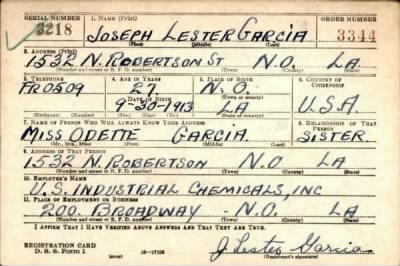 SERIAL NUMBER 1. NAME (Print) ORDER NUMBER
3218 JOSEPH LESTER GARCIA 3344
(First) (Middle) (Last)
2. ADDRESS (Print)
1532 N. ROBERTSON ST N.O. LA
(Number and street or R. F. D. number) (Town) (County) (State)
3. TELEPHONE 4. AGE IN YEARS 5. PLACE OF BIRTH 6. COUNTRY OF CITIZENSHIP
FR0509 27. N.O.
DATE OF BIRTH (Town or county)
9-30-1913 LA U.S.A.
(Exchange) (Number) (Mo.) (Day) (Yr.) (State or country)
7. NAME OF PERSON WHO WILL ALWAYS KNOW YOUR ADDRESS 8. RELATIONSHIP OF THAT PERSON
MISS ODETTE GARCIA. SISTER.
(Mr., Mrs., Miss) (First) (Middle) (Last)
9. ADDRESS OF THAT PERSON
1532 N. ROBERTSON N.O LA
(Number and street or R. F. D. number) (Town) (County) (State)
10. EMPLOYER'S NAME
U.S. INDUSTRIAL CHEMICALS, INC
11. PLACE OF EMPLOYMENT OR BUSINESS
200 BROADWAY - N.O. LA
(Number and street or R. F. D. number) (Town) (County) (State)
I AFFIRM THAT I HAVE VERIFIED ABOVE ANSWERS AND THAT THEY ARE TRUE.
REGISTRATION CARD
D. S. S. Form 1 (over) 16-17105 J Lester Garcia
(Registrant's signature)